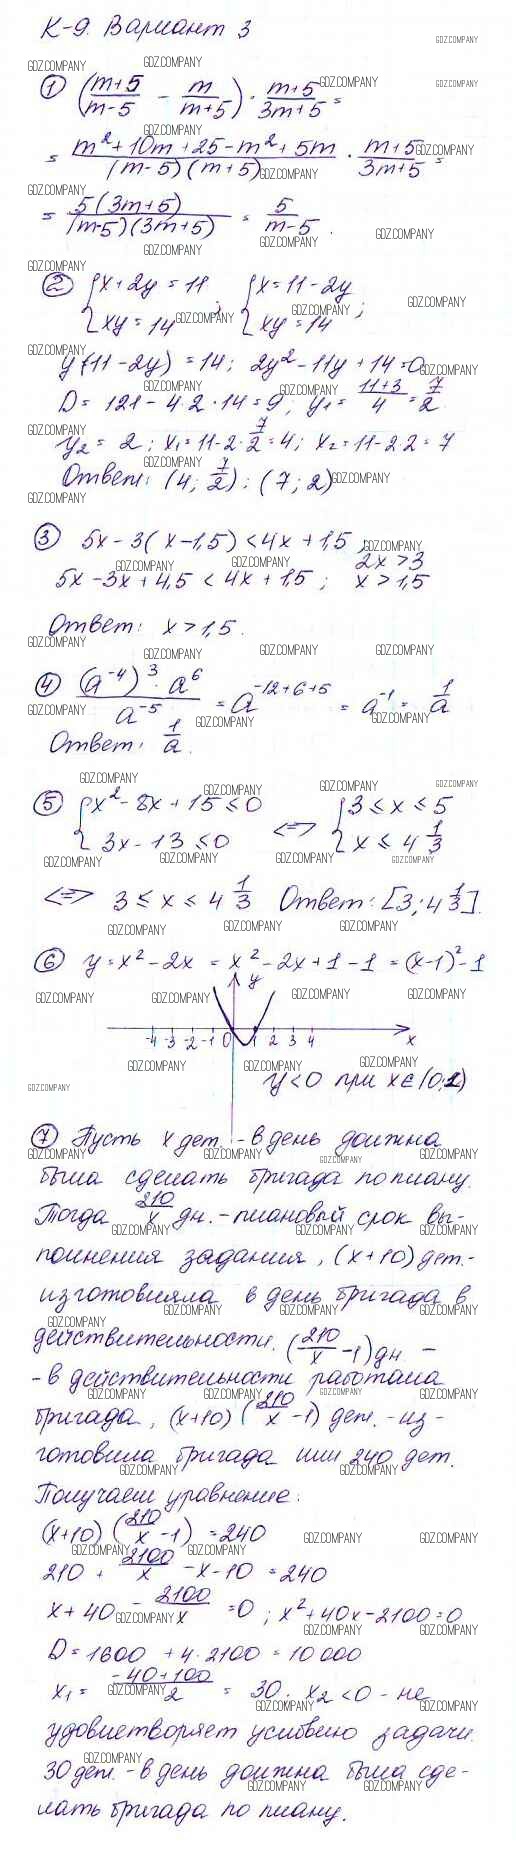 К-9. Вариант 3
① ((m+5)/(m-5) - m/(m+5)) · (m+5)/(3m+5) =
= (m²+10m+25-m²+5m)/((m-5)(m+5)) · (m+5)/(3m+5) =
= 5(3m+5)/((m-5)(3m+5)) = 5/(m-5).
② { x+2y=11 ; { x=11-2y ;
{ xy=14 { xy=14
y(11-2y)=14; 2y²-11y+14=0
D=121-4·2·14=9; y₁=(11+3)/4=7/2
y₂=2; x₁=11-2·7/2=4; x₂=11-2·2=7
Ответ: (4; 7/2); (7; 2)
③ 5x-3(x-1,5)<4x+1,5;
2x>3
5x-3x+4,5<4x+1,5; x>1,5
Ответ: x>1,5.
④ ((a⁻⁴)³·a⁶)/a⁻⁵ = a⁻¹²⁺⁶⁺⁵ = a⁻¹ = 1/a
Ответ: 1/a.
⑤ { x²-8x+15≤0 <=> { 3≤x≤5
{ 3x-13≤0 { x≤4 1/3
<=> 3≤x≤4 1/3 Ответ: [3; 4 1/3].
⑥ y=x²-2x=x²-2x+1-1=(x-1)²-1
y
-4 -3 -2 -1 0 1 2 3 4 x
y<0 при x∈(0;2)
⑦ Пусть x дет. - в день должна
была сделать бригада по плану.
Тогда 210/x дн. - плановый срок вы-
полнения задания, (x+10) дет.-
изготовляла в день бригада в
действительности. (210/x -1) дн -
- в действительности работала
бригада, (x+10)(210/x -1) дет. - из-
готовила бригада или 240 дет.
Получаем уравнение:
(x+10)(210/x -1)=240
210 + 2100/x - x - 10 = 240
x+40 - 2100/x = 0; x²+40x-2100=0
D=1600+4·2100=10000
x₁=(-40+100)/2 = 30. x₂<0 - не
удовлетворяет условию задачи.
30 дет. - в день должна была сде-
лать бригада по плану.
GDZ.COMPANY